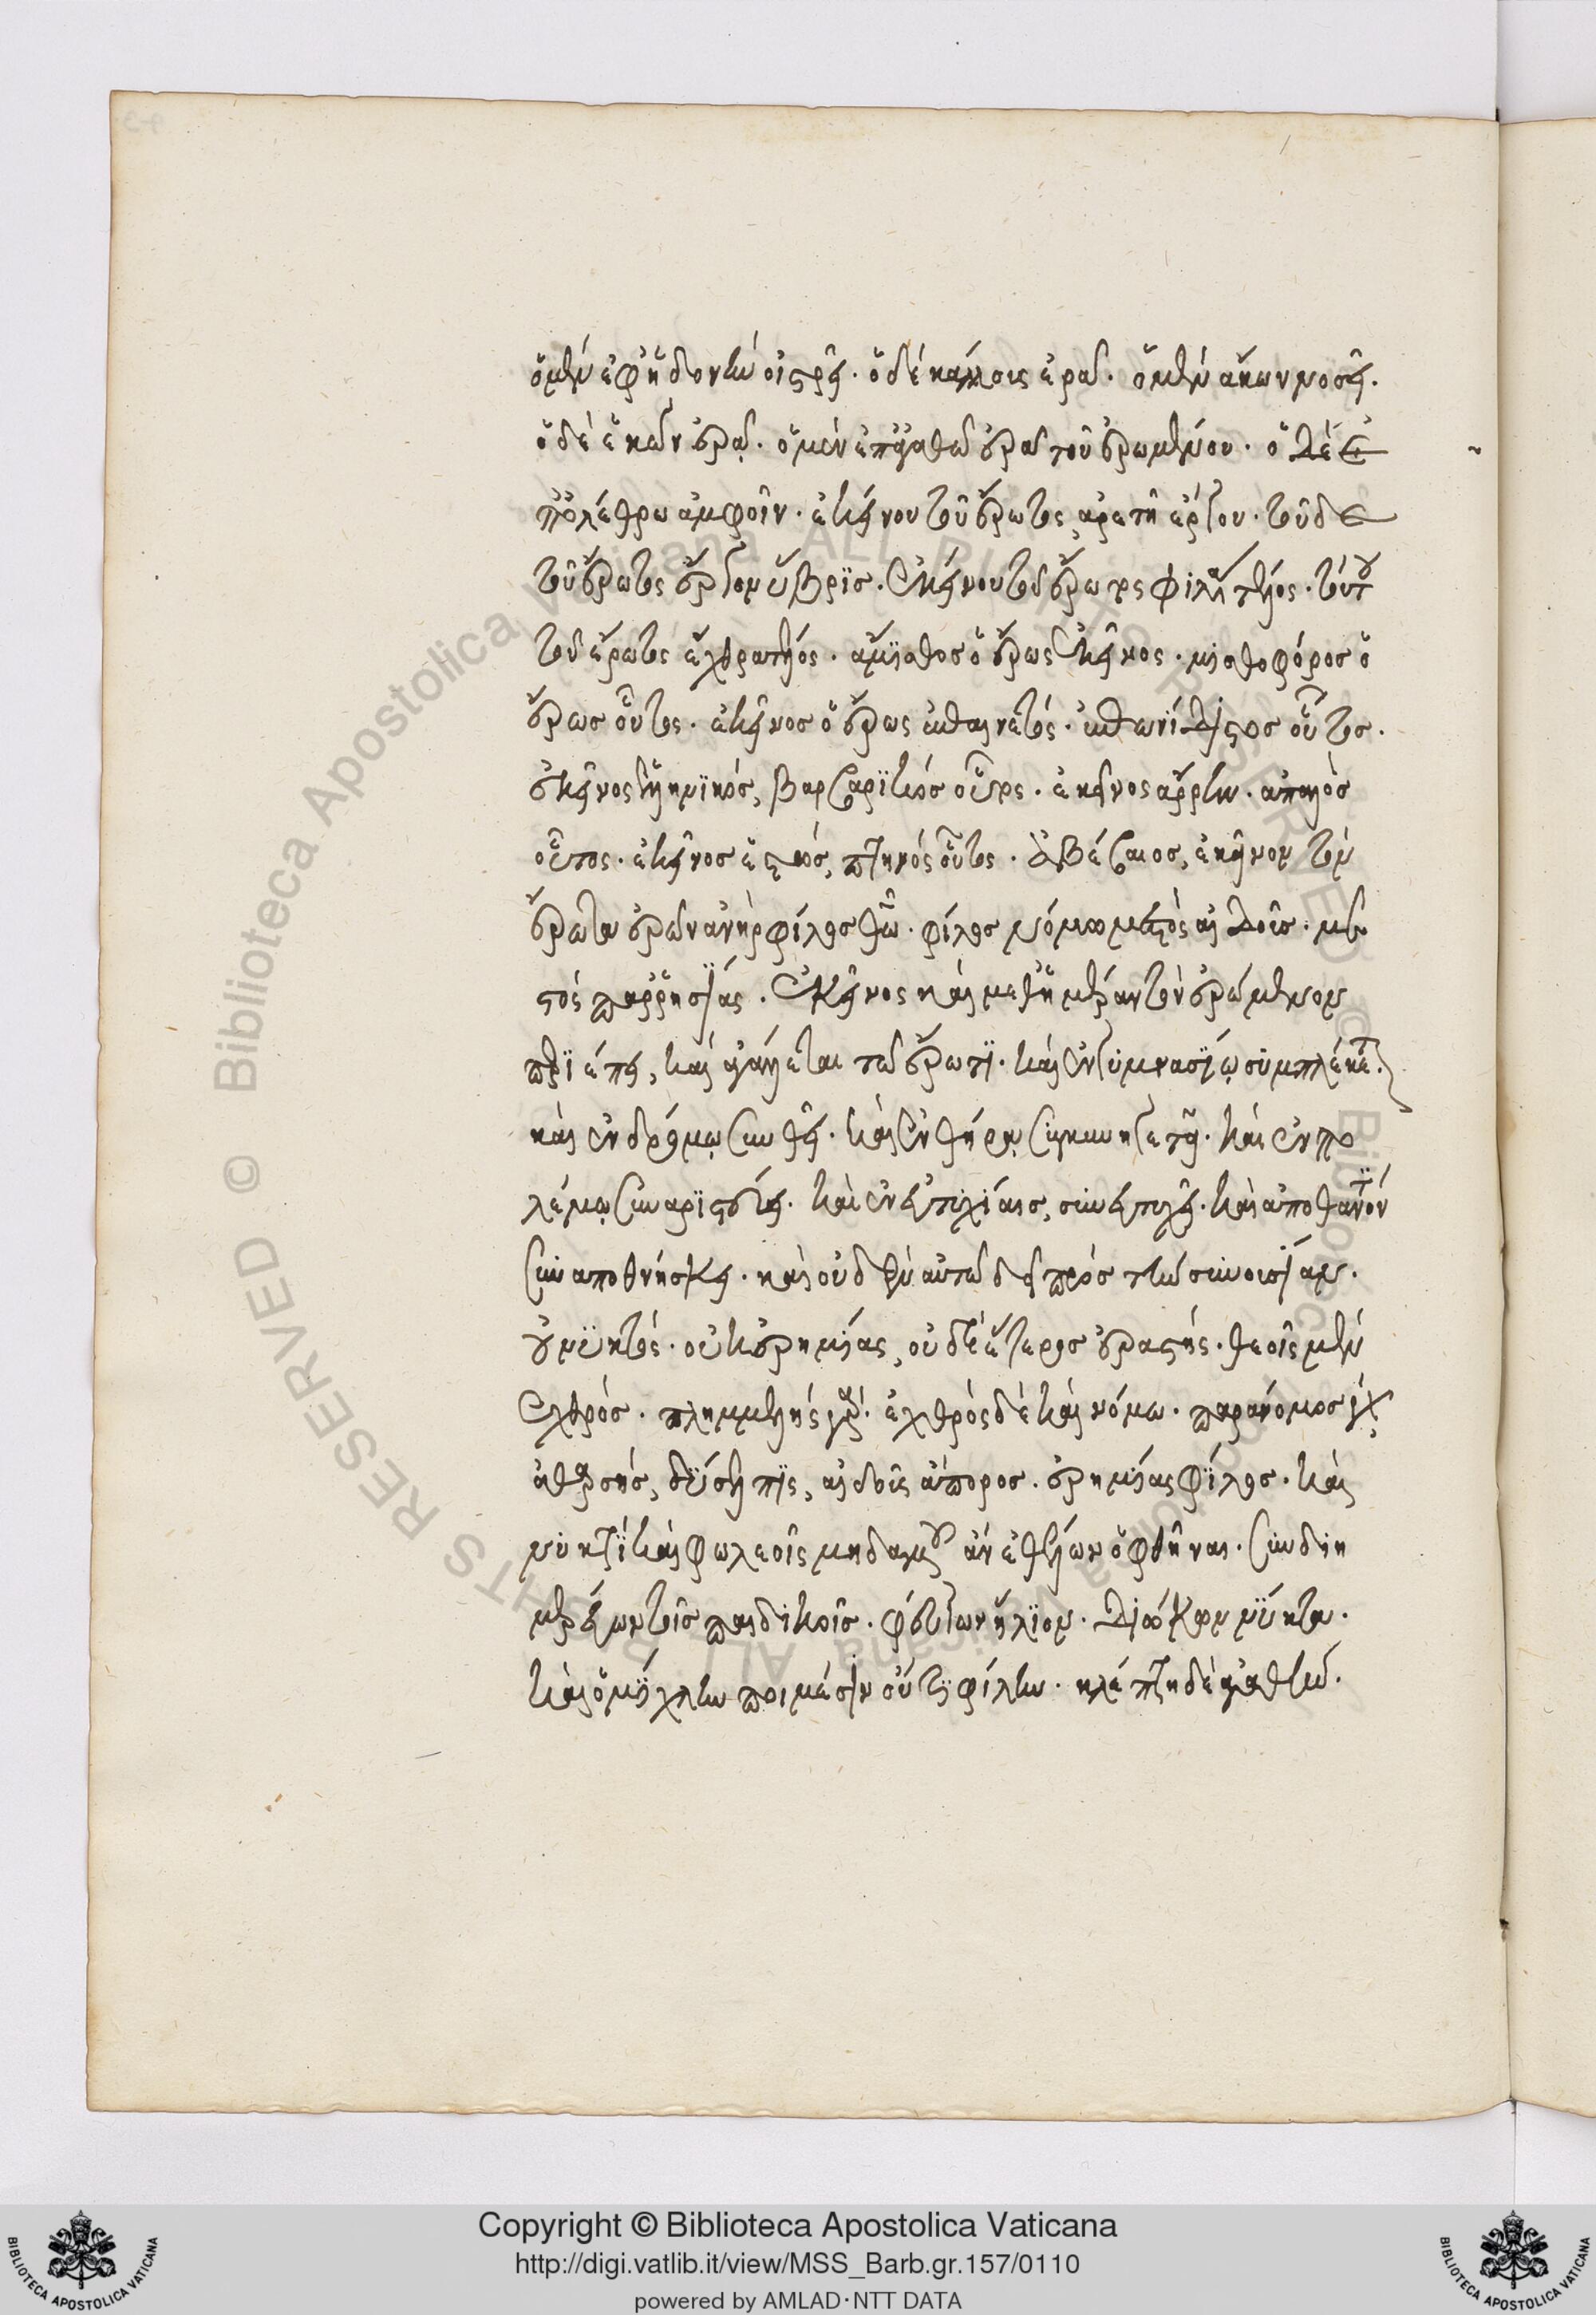 ὁ μὲν ἐφ' ἡδονὴν οἰστρεῖ. ὁ δὲ κάλλους ἐρᾷ. ὁ μὲν ἄκων νοσεῖ.
ὁ δὲ ἑκὼν ἐρᾷ. ὁ μὲν ἐπ' ἀγαθῷ ἐρᾷ τοῦ ἐρωμένου. ὁ δὲ ἐ
π' ὀλέθρῳ ἀμφοῖν. ἐκείνου τοῦ ἔρωτος, ἀρετὴ ἔργον. τοῦ δὲ
τοῦ ἔρωτος ἔργον ὕβρις. ἐκείνου τοῦ ἔρωτος φιλία τέλος. τούτου
τοῦ ἔρωτος ἔχθρα τέλος. ἄμισθος ὁ ἔρως ἐκεῖνος. μισθοφόρος ὁ
ἔρως οὗτος. ἐκεῖνος ὁ ἔρως ἐπαινετός. ἐπονείδιστος οὗτος.
ἐκεῖνος ἑλληνικός, βαρβαρικὸς οὗτος. ἐκεῖνος ἄρρην. ἁπαλὸς
οὗτος. ἐκεῖνος ἑστώς, πτηνὸς οὗτος. ἀβέβαιος, ἐκεῖνον τὸν
ἔρωτα ἐρῶν ἀνὴρ φίλος θεῷ. φίλος νόμῳ μεστὸς αἰδοῦς. με
στὸς παρρησίας. ἐκεῖνος καὶ μεθ' ἡμέραν τὸν ἐρώμενον
περιέπει, καὶ ἀγάλλεται τῷ ἔρωτι. καὶ ἐν γυμνασίῳ συμπλέκεται.
καὶ ἐν δρόμῳ συνθεῖ. καὶ ἐν θήρᾳ συγκυνηγετεῖ. καὶ ἐν πο
λέμῳ συναριστεύει. καὶ ἐν εὐτυχίαις, συνευτυχεῖ. καὶ ἀποθανόντι
συναποθνήσκει. καὶ οὐδὲν αὐτῷ δεῖ πρὸς τὴν συνουσίαν.
οὐ νυκτός. οὐκ ἐρημίας, ὁ δὲ ἕτερος ἐραστής. θεοῖς μὲν
ἐχθρός. πλημμελὴς γάρ. ἐχθρὸς δὲ καὶ νόμῳ. παράνομος γάρ,
ἀθαρσής, δύσελπις, αἰδοῦς ἄπορος. ἐρημίας φίλος. καὶ
νυκτὶ καὶ φωλεοῖς μηδαμοῦ ἂν ἐθέλων ὀφθῆναι. συνδιη
μερεύων τοῖς παιδικοῖς. φεύγων ἥλιον. διώκων νύκτα.
καὶ ὀμίχλην ποιμέσιν οὔτι φίλην. κλέπτῃ δὲ ἀγαθήν.
Copyright © Biblioteca Apostolica Vaticana
http://digi.vatlib.it/view/MSS_Barb.gr.157/0110
powered by AMLAD·NTT DATA